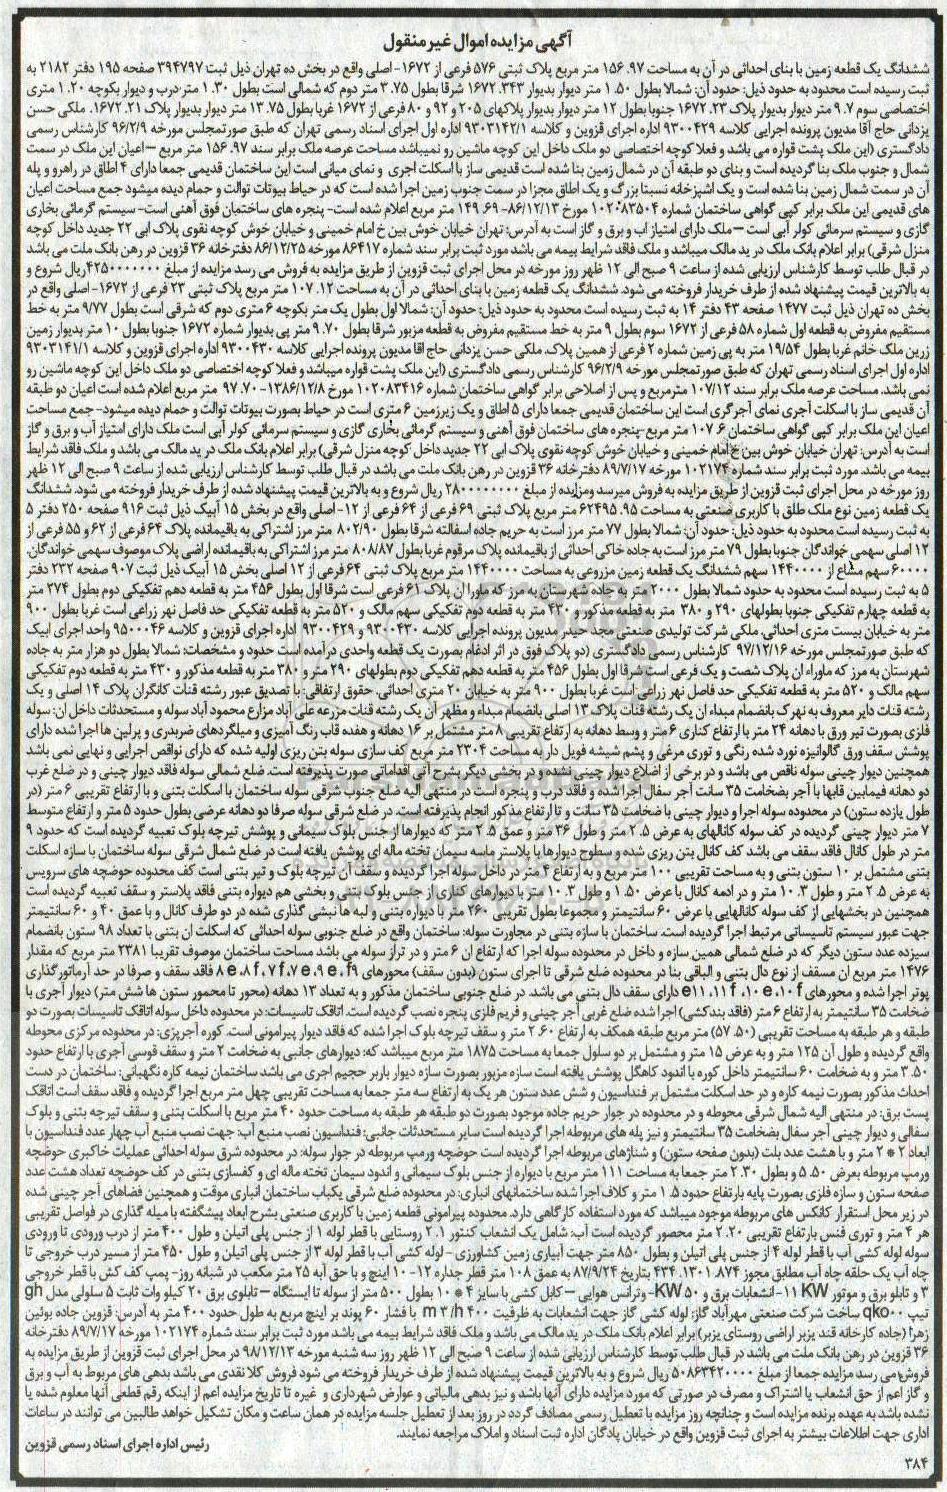 آگهی مزایده اموال غیر منقول
ششدانگ یک قطعه زمین با بنای احداثی در آن به مساحت ۱۵۶.۹۷ متر مربع پلاک ثبتی ۵۷۶ فرعی از ۱۶۷۲- اصلی واقع در بخش ده تهران ذیل ثبت ۳۹۴۷۹۷ صفحه ۱۹۵ دفتر ۲۱۸۲ به
ثبت رسیده است محدود به حدود ذیل: حدود آن: شمالا بطول ۱.۵۰ متر دیوار بدیوار ۱۶۷۲.۳۴۳ شرقا بطول ۳.۷۵ متر دوم که شمالی است بطول ۱.۳۰ متر درب و دیوار بکوچه ۱.۲۰ متری
اختصاصی سوم ۹.۷ متر دیوار بدیوار پلاک ۱۶۷۲.۲۳ جنوبا بطول ۱۲ متر دیوار بدیوار پلاکهای ۲۰۵ و ۹۲ و ۸۰ فرعی از ۱۶۷۲ غربا بطول ۱۳.۷۵ متر دیوار بدیوار پلاک ۱۶۷۲.۲۱. ملکی حسن
یزدانی حاج آقا مدیون پرونده اجرایی کلاسه ۹۳۰۰۴۲۹ اداره اجرای قزوین و کلاسه ۹۳۰۳۱۴۲/۱ اداره اول اجرای اسناد رسمی تهران که طبق صورتمجلس مورخه ۹۶/۲/۹ کارشناس رسمی
دادگستری (این ملک پشت قواره می باشد و فعلا کوچه اختصاصی دو ملک داخل این کوچه ماشین رو نمیباشد مساحت عرصه ملک برابر سند ۱۵۶.۹۷ متر مربع – اعیان این ملک در سمت
شمال و جنوب ملک بنا گردیده است و بنای دو طبقه آن در شمال زمین بنا شده است قدیمی ساز با اسکلت اجری و نمای میانی است این ساختمان قدیمی جمعا دارای ۴ اطاق در راهرو و پله
آن در سمت شمال زمین بنا شده است و یک اشپزخانه نسبتا بزرگ و یک اطاق مجزا در سمت جنوب زمین اجرا شده است که در حیاط بیوتات توالت و حمام دیده میشود جمع مساحت اعیان
های قدیمی این ملک برابر کپی گواهی ساختمان شماره ۱۰۲۰۸۳۵۰۴ مورخ ۸۶/۱۲/۱۳- ۱۴۹.۶۹ متر مربع اعلام شده است- پنجره های ساختمان فوق آهنی است- سیستم گرمائی بخاری
گازی و سیستم سرمائی کولر آبی است – ملک دارای امتیاز اب و برق و گاز است به آدرس: تهران خیابان خوش بین خ امام خمینی و خیابان خوش کوچه نقوی پلاک ابی ۲۲ جدید داخل کوچه
منزل شرقی) برابر اعلام بانک ملک در ید مالک میباشد و ملک فاقد شرایط بیمه می باشد مورد ثبت برابر سند شماره ۸۶۴۱۷ مورخه ۸۶/۱۲/۲۵ دفترخانه ۳۶ قزوین در رهن بانک ملت می باشد
در قبال طلب توسط کارشناس ارزیابی شده از ساعت ۹ صبح الی ۱۲ ظهر روز مورخه در محل اجرای ثبت قزوین از طریق مزایده به فروش می رسد مزایده از مبلغ ۴۲۵۰۰۰۰۰۰۰ ریال شروع و
به بالاترین قیمت پیشنهاد شده از طرف خریدار فروخته می شود. ششدانگ یک قطعه زمین با بنای احداثی در آن به مساحت ۱۰۷.۱۲ متر مربع پلاک ثبتی ۲۳ فرعی از ۱۶۷۲- اصلی واقع در
بخش ده تهران ذیل ثبت ۱۴۷۷ صفحه ۴۳ دفتر ۱۴ به ثبت رسیده است محدود به حدود ذیل: حدود آن: شمالا اول بطول یک متر بکوچه ۶ متری دوم که شرقی است بطول ۹/۷۷ متر به خط
مستقیم مفروض به قطعه اول شماره ۵۸ فرعی از ۱۶۷۲ سوم بطول ۹ متر به خط مستقیم مفروض به قطعه مزبور شرقا بطول ۹.۷۰ متر پی بدیوار شماره ۱۶۷۲ جنوبا بطول ۱۰ متر بدیوار زمین
زرین ملک خانم غربا بطول ۱۹/۵۴ متر به پی زمین شماره ۲ فرعی از همین پلاک. ملکی حسن یزدانی حاج اقا مدیون پرونده اجرایی کلاسه ۹۳۰۰۴۳۰ اداره اجرای قزوین و کلاسه ۹۳۰۳۱۴۱/۱
اداره اول اجرای اسناد رسمی تهران که طبق صورتمجلس مورخه ۹۶/۲/۹ کارشناس رسمی دادگستری (این ملک پشت قواره میباشد و فعلا کوچه اختصاصی دو ملک داخل این کوچه ماشین رو
نمی باشد. مساحت عرصه ملک برابر سند ۱۰۷/۱۲ مترمربع و پس از اصلاحی برابر گواهی ساختمان شماره ۱۰۲۰۸۳۴۱۶ مورخ ۱۳۸۶/۱۲/۸- ۹۷.۷۰ متر مربع اعلام شده است اعیان دو طبقه
آن قدیمی ساز با اسکلت آجری نمای آجرگری است این ساختمان قدیمی جمعا دارای ۵ اطاق و یک زیرزمین ۶ متری است در حیاط بصورت بیوتات توالت و حمام دیده میشود- جمع مساحت
اعیان این ملک برابر کپی گواهی ساختمان ۱۰۷.۶ متر مربع –پنجره های ساختمان فوق آهنی و سیستم گرمائی بخاری گازی و سیستم سرمائی کولر آبی است ملک دارای امتیاز آب و برق و گاز
است به آدرس: تهران خیابان خوش بین خ امام خمینی و خیابان خوش کوچه نقوی پلاک ابی ۲۲ جدید داخل کوچه منزل شرقی) برابر اعلام بانک ملک در ید مالک می باشد و ملک فاقد شرایط
بیمه می باشد. مورد ثبت برابر سند شماره ۱۰۲۱۷۴ مورخه ۸۹/۷/۱۷ دفترخانه ۳۶ قزوین در رهن بانک ملت می باشد در قبال طلب توسط کارشناس ارزیابی شده از ساعت ۹ صبح الی ۱۲ ظهر
روز مورخه در محل اجرای ثبت قزوین از طریق مزایده به فروش میرسد ومزایده از مبلغ ۲۸۰۰۰۰۰۰۰۰ ریال شروع و به بالاترین قیمت پیشنهاد شده از طرف خریدار فروخته می شود. ششدانگ
یک قطعه زمین نوع ملک طلق با کاربری صنعتی به مساحت ۶۲۴۹۵.۹۵ متر مربع پلاک ثبتی ۶۹ فرعی از ۶۴ فرعی از ۱۲- اصلی واقع در بخش ۱۵ آبیک ذیل ثبت ۹۱۶ صفحه ۲۵۰ دفتر ۵
به ثبت رسیده است محدود به حدود ذیل: حدود آن: شمالا بطول ۷۷ متر مرز است به حریم جاده اسفالته شرقا بطول ۸۰۲/۹۰ متر مرز اشتراکی به باقیمانده پلاک ۶۴ فرعی از ۶۲ و ۵۵ فرعی از
۱۲ اصلی سهمی خواندگان جنوبا بطول ۷۹ متر مرز است به جاده خاکی احداثی از باقیمانده پلاک مرقوم غربا بطول ۸۰۸/۸۷ متر مرز اشتراکی به باقیمانده اراضی پلاک موصوف سهمی خواندگان.
۶۰۰۰۰ سهم مشاع از ۱۴۴۰۰۰۰ سهم ششدانگ یک قطعه زمین مزروعی به مساحت ۱۴۴۰۰۰۰ متر مربع پلاک ثبتی ۶۴ فرعی از ۱۲ اصلی بخش ۱۵ آبیک ذیل ثبت ۹۰۷ صفحه ۲۳۲ دفتر
۵ به ثبت رسیده است محدود به حدود شمالا بطول ۲۰۰۰ متر به جاده شهرستان به مرز که ماورا ان پلاک ۶۱ فرعی است شرقا اول بطول ۴۵۶ متر به قطعه دهم تفکیکی دوم بطول ۲۷۴ متر
به قطعه چهارم تفکیکی جنوبا بطولهای ۲۹۰ و ۳۸۰ متر به قطعه مذکور و ۴۳۰ متر به قطعه دوم تفکیکی سهم مالک و ۵۲۰ متر به قطعه تفکیکی حد فاصل نهر زراعی است غربا بطول ۹۰۰
متر به خیابان بیست متری احداثی. ملکی شرکت تولیدی صنعتی مجد حیدر مدیون پرونده اجرایی کلاسه ۹۳۰۰۴۳۰ و ۹۳۰۰۴۲۹ اداره اجرای قزوین و کلاسه ۹۵۰۰۰۴۶ واحد اجرای ابیک
که طبق صورتمجلس مورخه ۹۷/۱۲/۱۶ کارشناس رسمی دادگستری (دو پلاک فوق در اثر ادغام بصورت یک قطعه واحدی در آمده است حدود و مشخصات: شمالا بطول دو هزار متر به جاده
شهرستان به مرز که ماوراء ان پلاک شصت و یک فرعی است شرقا اول بطول ۴۵۶ متر به قطعه دهم تفکیکی دوم بطولهای ۲۹۰ متر و ۳۸۰ متر به قطعه مذکور و ۴۳۰ متر به قطعه دوم تفکیکی
سهم مالک و ۵۲۰ متر به قطعه تفکیکی حد فاصل نهر زراعی است غربا بطول ۹۰۰ متر به خیابان ۲۰ متری احداثی. حقوق ارتفاقی: با تصدیق عبور رشته قنات کانگران پلاک ۱۴ اصلی و یک
رشته قنات دایر معروف به نهرک بانضمام مبداء ان یک رشته قنات پلاک ۱۳ اصلی بانضمام مبداء و مظهر ان یک رشته قنات مزرعه علی آباد مزارع محمود آباد سوله و مستحدثات داخل ان: سوله
فلزی بصورت تیر ورق با دهانه ۲۴ متر با ارتفاع کناری ۶ متر و وسط دهانه به ارتفاع تقریبی ۸ متر مشتمل بر ۱۶ دهانه و هفده قاب رنگ آمیزی و میلگردهای ضربدری و پرلین ها اجرا شده دارای
پوشش سقف ورق گالوانیزه نورد شده رنگی و توری مرغی و پشم شیشه فویل دار به مساحت ۲۳۰۴ متر مربع کف سازی سوله بتن ریزی اولیه شده که دارای نواقص اجرایی و نهایی نمی باشد
همچنین دیوار چینی سوله ناقص می باشد و در برخی از اضلاع دیوار چینی نشده و در بخشی دیگر بشرح آتی اقداماتی صورت پذیرفته است. ضلع شمالی سوله فاقد دیوار چینی و در ضلع غرب
دو دهانه فیمابین قابها با آجر بضخامت ۳۵ سانت آجر سفال اجرا شده و فاقد درب و پنجره است در منتهی الیه ضلع جنوب شرقی سوله ساختمان با اسکلت بتنی و با ارتفاع تقریبی ۶ متر (در
طول یازده ستون) در محدوده سوله اجرا و دیوار چینی با ضخامت ۳۵ سانت و تا ارتفاع مذکور انجام پذیرفته است. در ضلع شرقی سوله صرفا دو دهانه عرضی بطول حدود ۵ متر و ارتفاع متوسط
۷ متر دیوار چینی گردیده در کف سوله کانالهای به عرض ۲.۵ متر و طول ۳۶ متر و عمق ۲.۵ متر که دیوارها از جنس بلوک سیمانی و پوشش تیرچه بلوک تعبیه گردیده است که حدود ۹
متر در طول کانال فاقد سقف می باشد کف کانال بتن ریزی شده و سطوح دیوارها با پلاستر ماسه سیمان تخته ماله ای پوشش یافته است در ضلع شمال شرقی سوله ساختمان با سازه اسکلت
بتنی مشتمل بر ۱۰ ستون بتنی و به مساحت تقریبی ۱۰۰ متر مربع و به ارتفاع ۳ متر در داخل سوله اجرا گردیده و سقف آن تیرچه بلوک و تیر بتنی است کف محدوده حوضچه های سرویس
به عرض ۲.۵ متر و طول ۱۰.۳ متر و در ادمه کانال با عرض ۱.۵۰ و طول ۱۰.۳ متر بر دیوارهای کناری از جنس بلوک بتنی و بخشی هم دیواره بتنی فاقد پلاستر و سقف تعبیه گردیده است
همچنین در بخشهایی از کف سوله کانالهایی با عرض ۶۰ سانتیمتر و مجموعا بطول تقریبی ۲۶۰ متر با دیواره بتنی و لبه ها نبشی گذاری شده در دو طرف کانال و با عمق ۴۰ و ۶۰ سانتیمتر
جهت عبور سیستم تاسیساتی مرتبط اجرا گردیده است. ساختمان با سازه بتنی در مجاورت سوله: ساختمان واقع در ضلع جنوبی سوله احداثی که اسکلت ان بتنی با تعداد ۹۸ ستون بانضمام
سیزده عدد ستون دیگر که در ضلع شمالی همین سازه و داخل در محدوده سوله اجرا که ارتفاع ان ۶ متر و در تراز سوله می باشد مساحت ساختمان موصوف تقریبا ۲۳۸۱ متر مربع که مقدار
۱۴۷۶ متر مربع ان مسقف از نوع دال بتنی و الباقی بنا در محدوده ضلع شرقی تا اجرای ستون (بدون سقف) محورهای 9e ،9f ،7e ،7f ،8f ،8e فاقد سقف و صرفا در حد آرماتورگذاری
پوتر اجرا شده و محورهای 10f ،10e ،11f ،11e دارای سقف دال بتنی می باشد. در ضلع جنوبی ساختمان مذکور و به تعداد ۱۳ دهانه (محور تا محمور ستون ها شش متر) دیوار آجری با
ضخامت ۳۵ سانتیمتر به ارتفاع ۶ متر (فاقد بندکشی) اجرا شده ضلع غربی آجر چینی و فریم فلزی پنجره نصب گردیده است. اتاقک تاسیسات: در محدوده داخل سوله اتاقک تاسیسات بصورت دو
طبقه و هر طبقه به مساحت تقریبی (۵۷.۵۰) متر مربع طبقه همکف به ارتفاع ۲.۶۰ متر و سقف تیرچه بلوک اجرا شده که فاقد دیوار پیرامونی است. کوره آجرپزی: در محدوده مرکزی محوطه
واقع گردیده و طول آن ۱۲۵ متر و به عرض ۱۵ متر و مشتمل بر دو سلول جمعا به مساحت ۱۸۷۵ متر مربع میباشد که: دیوارهای جانبی به ضخامت ۲ متر و سقف قوسی آجری با ارتفاع حدود
۳.۵۰ متر و به ضخامت ۶۰ سانتیمتر داخل کوره با اندود کاهگل پوشش یافته است سازه مزبور بصورت سازه دیوار باربر حجیم اجری می باشد ساختمان نیمه کاره نگهبانی: ساختمان در دست
احداث مذکور بصورت نیمه کاره و در حد اسکلت مشتمل بر فنداسیون و شش عدد ستون هر یک به ارتفاع سه متر جمعا به مساحت تقریبی چهل متر مربع اجرا گردیده و فاقد سقف است اتاقک
پست برق: در منتهی الیه شمال شرقی محوطه و در محدوده در جوار حریم جاده موجود بصورت دو طبقه هر طبقه به مساحت حدود ۴۰ متر مربع با اسکلت بتنی و سقف تیرچه بتنی و بلوک
سفالی و دیوار چینی آجر سفال بضخامت ۳۵ سانتیمتر و نیز پله های مربوطه اجرا گردیده است سایر مستحدثات جانبی: فنداسیون نصب منبع آب: جهت نصب منبع آب چهار عدد فنداسیون با
ابعاد ۲ * ۲ متر و با هشت عدد بلت (بدون صفحه ستون) و شناژهای مربوطه اجرا گردیده است حوضچه ورمپ مربوطه در جوار سوله: در محدوده شرق سوله احداثی عملیات خاکبری حوضچه
ورمپ مربوطه بعرض ۵.۵۰ و بطول ۲.۳۰ متر جمعا به مساحت ۱۱۱ متر مربع با دیواره از جنس بلوک سیمانی و اندود سیمان تخته ماله ای و کفسازی بتنی در کف حوضچه تعداد هشت عدد
صفحه ستون و سازه فلزی بصورت پایه بارتفاع حدود ۱.۵ متر و کلاف اجرا شده ساختمانهای انباری: در محدوده ضلع شرقی یکباب ساختمان انباری موقت و همچنین فضاهای آجر چینی شده
در زیر محل استقرار کانکس های مربوطه موجود میباشد که مورد استفاده کارگاهی دارد. محدوده پیرامونی قطعه زمین با کاربری صنعتی بشرح ابعاد پیشگفته با میله گذاری در فواصل تقریبی
هر ۲ متر و توری فنس بارتفاع تقریبی ۲.۲۰ متر محصور گردیده است آب: شامل یک انشعاب کنتور ۲.۱ روستایی با قطر لوله ۱ از جنس پلی اتیلن و طول ۴۰۰ متر از درب ورودی تا ورودی
سوله لوله کشی آب با قطر لوله ۴ از جنس پلی اتیلن و بطول ۸۵۰ متر جهت آبیاری زمین کشاورزی – لوله کشی آب با قطر لوله ۳ از جنس پلی اتیلن و طول ۴۵۰ متر از مسیر درب خروجی تا
چاه آب یک حلقه چاه آب مطابق مجوز ۱۳۰۱.۸۷۴. ۴۳۴ بتاریخ ۸۷/۹/۲۴ به عمق ۱۰۸ متر قطر جداره ۱۲- ۱۰ اینچ و با حق آبه ۲۵ متر مکعب در شبانه روز- پمپ کف کش با قطر خروجی
۳ و تابلو برق و موتور 11 KW- انشعابات برق و 50 KW- وترانس هوایی – کابل کشی با سایز ۴ * ۱۰ بطول ۵۰۰ متر از سوله تا ایستگاه – تابلوی برق ۲۰ کیلو وات ثابت ۵ سلولی مدل gh
تیپ qko۰۰ ساخت شرکت صنعتی مهرآباد گاز: لوله کشی گاز جهت انشعابات به ظرفیت ۴۰۰ m ۳/h با فشار ۶۰ پوند بر اینچ مربع به طول حدود ۴۰۰ متر به آدرس: قزوین جاده بوئین
زهرا (جاده کارخانه قند یزبر اراضی روستای یزبر) برابر اعلام بانک ملک در ید مالک می باشد و ملک فاقد شرایط بیمه می باشد مورد ثبت برابر سند شماره ۱۰۲۱۷۴ مورخه ۸۹/۷/۱۷ دفترخانه
۳۶ قزوین در رهن بانک ملت می باشد در قبال طلب توسط کارشناس ارزیابی شده از ساعت ۹ صبح الی ۱۲ ظهر روز سه شنبه مورخه ۹۸/۱۲/۱۳ در محل اجرای ثبت قزوین از طریق مزایده به
فروش می رسد مزایده جمعا از مبلغ ۵۰۸۶۳۴۲۰۰۰۰ ریال شروع و به بالاترین قیمت پیشنهاد شده از طرف خریدار فروخته می شود فروش کلا نقدی می باشد بدهی های مربوط به آب و برق
و گاز اعم از حق انشعاب یا اشتراک و مصرف در صورتی که مورد مزایده دارای آنها باشد و نیز بدهی مالیاتی و عوارض شهرداری و غیره تا تاریخ مزایده اعم از اینکه رقم قطعی آنها معلوم شده یا
نشده باشد به عهده برنده مزایده است و چنانچه روز مزایده با تعطیل رسمی مصادف گردد در روز بعد از تعطیل جلسه مزایده در همان ساعت و مکان تشکیل خواهد طالبین می توانند در ساعات
اداری جهت اطلاعات بیشتر به اجرای ثبت قزوین واقع در خیابان پادگان اداره ثبت اسناد و املاک مراجعه نمایند.
رئیس اداره اجرای اسناد رسمی قزوین
۳۸۴